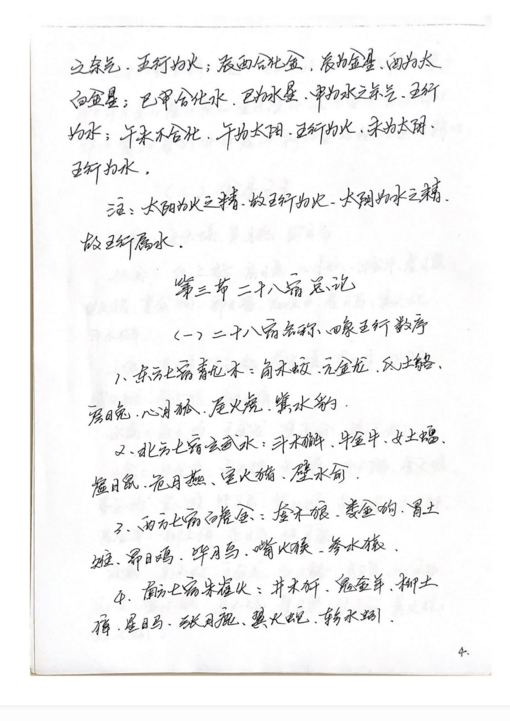 之余气、五行为火；辰酉合化金，辰为金星、酉为太
白金星；巳申合化水、巳为水星、申为水之余气、五行
为水；午未不合化、午为太阳、五行为火、未为太阴、
五行为水。
注：太阳为火之精、故五行为火、太阴为水之精、
故五行属水.
第三节 二十八宿总论
(一)二十八宿名称、四象五行数序
1、东方七宿青龙木：角木蛟、亢金龙、氐土貉、
房日兔、心月狐、尾火虎、箕水豹.
2、北方七宿玄武水：斗木獬、牛金牛、女土蝠、
虚日鼠、危月燕、室火猪、壁水俞.
3、西方七宿白虎金：奎木狼、娄金狗、胃土
雉、昴日鸡、毕月乌、嘴火猴、参水猿.
4、南方七宿朱雀火：井木犴、鬼金羊、柳土
獐、星日马、张月鹿、翼火蛇、轸水蚓.
4.